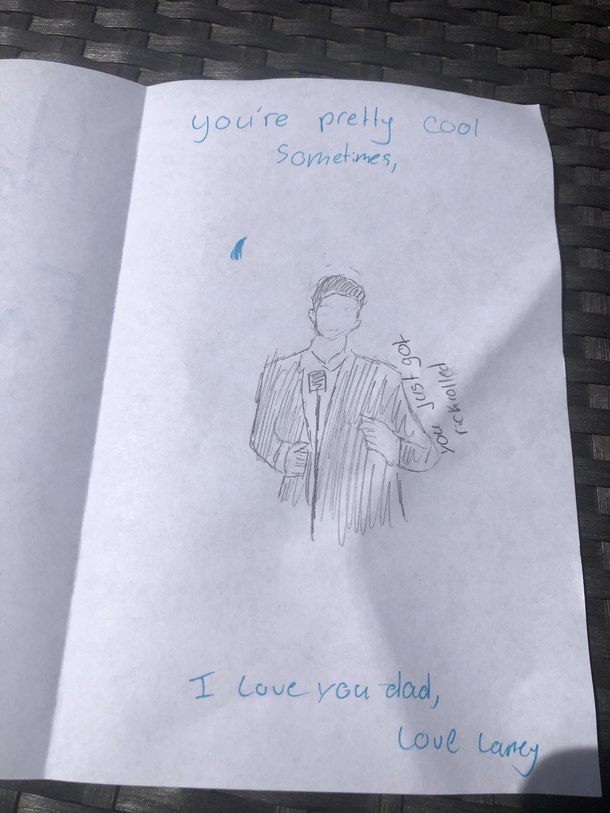 you're pretty cool
sometimes,
you just got
rickrolled
I love you dad,
Love Laney